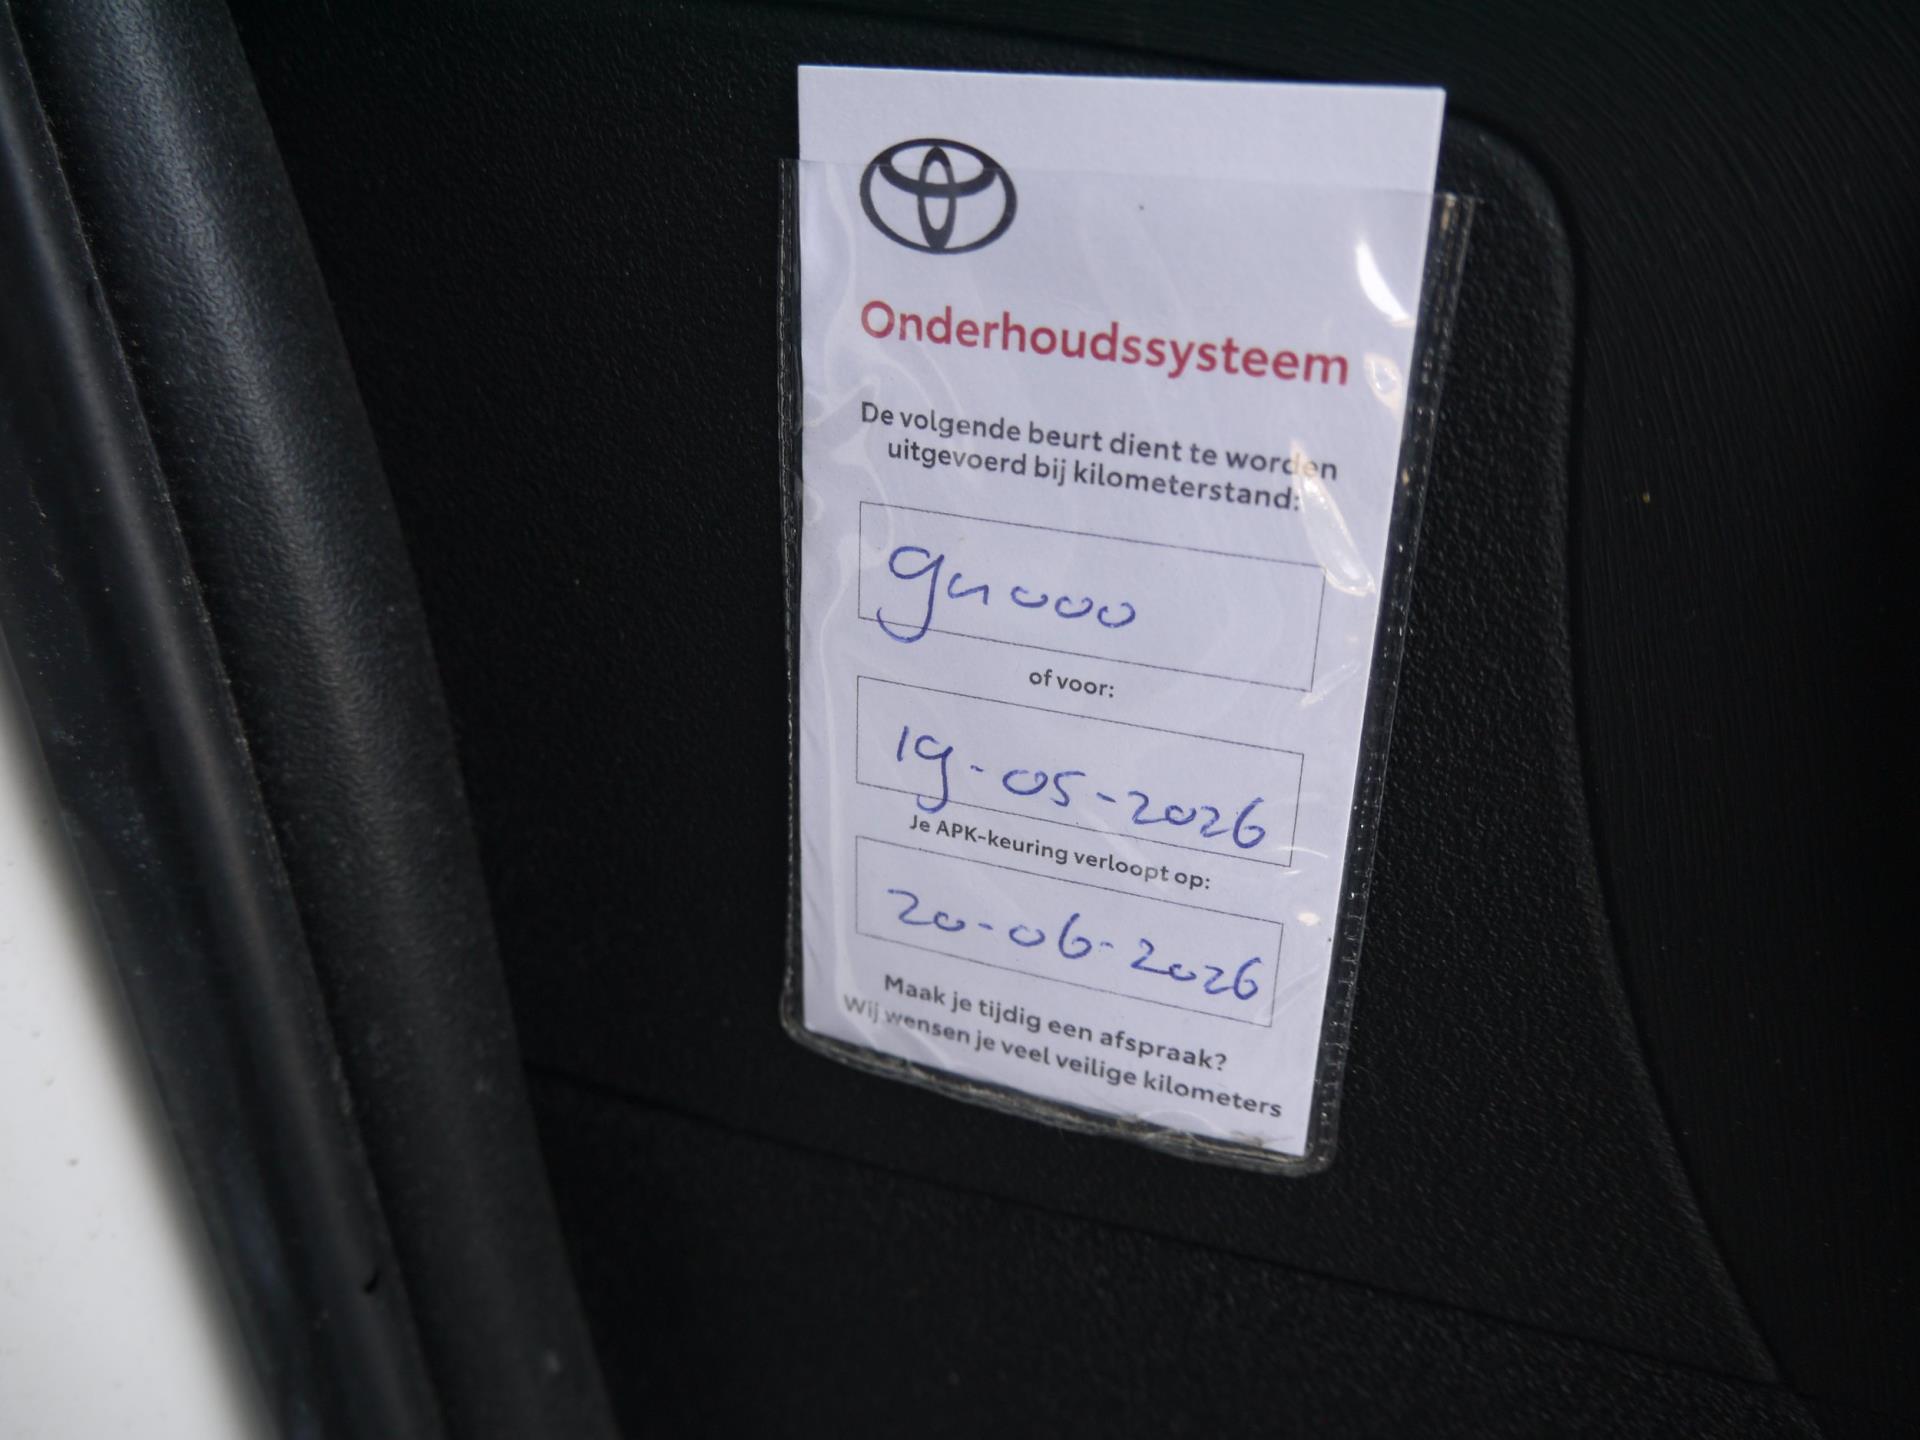 Onderhoudssysteem
De volgende beurt dient te worden
uitgevoerd bij kilometerstand:
94000
of voor:
19-05-2026
Je APK-keuring verloopt op:
20-06-2026
Maak je tijdig een afspraak?
Wij wensen je veel veilige kilometers